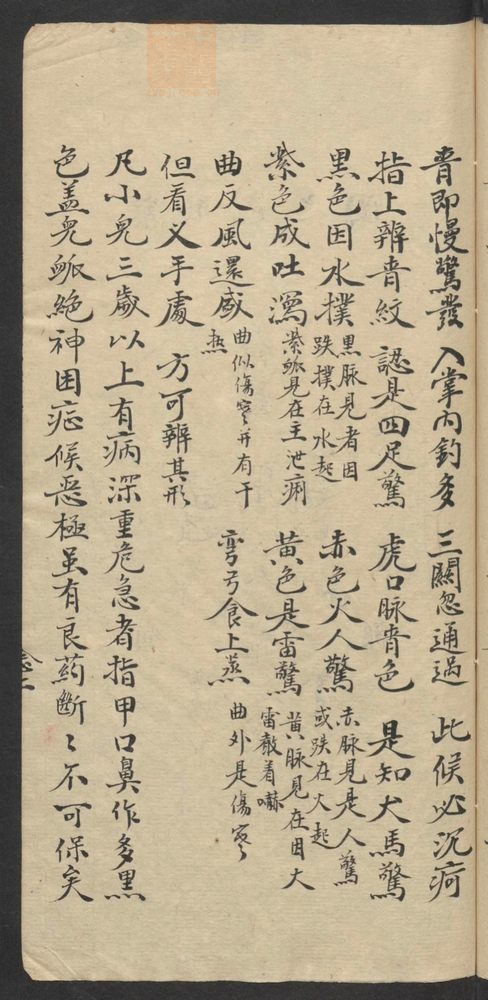 青即慢驚發 入掌內釣多 三關忽通過 此候必沉疴
指上辨青紋 認是四足驚 虎口脉青色 是知犬馬驚
黑色因水撲 黑脉見者因跌撲在水起 赤色火人驚 赤脉見是人驚或跌在火起
紫色成吐瀉 紫脈見在主泄痢 黄色是雷驚 黃脉見在因大雷敵着嚇
曲反風還盛 曲似傷寒并有干热 弯弓食上蒸 曲外是傷寒
但看义手處 方可辨其形
凡小皃三歲以上有病深重危急者指甲口鼻作多黑
色盖皃脈絶神困症候恶極虽有良药斷〻不可保矣